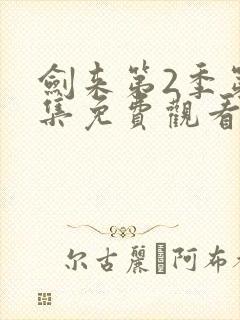 劍来第2季第
集免費觀看
尔古麗 阿布